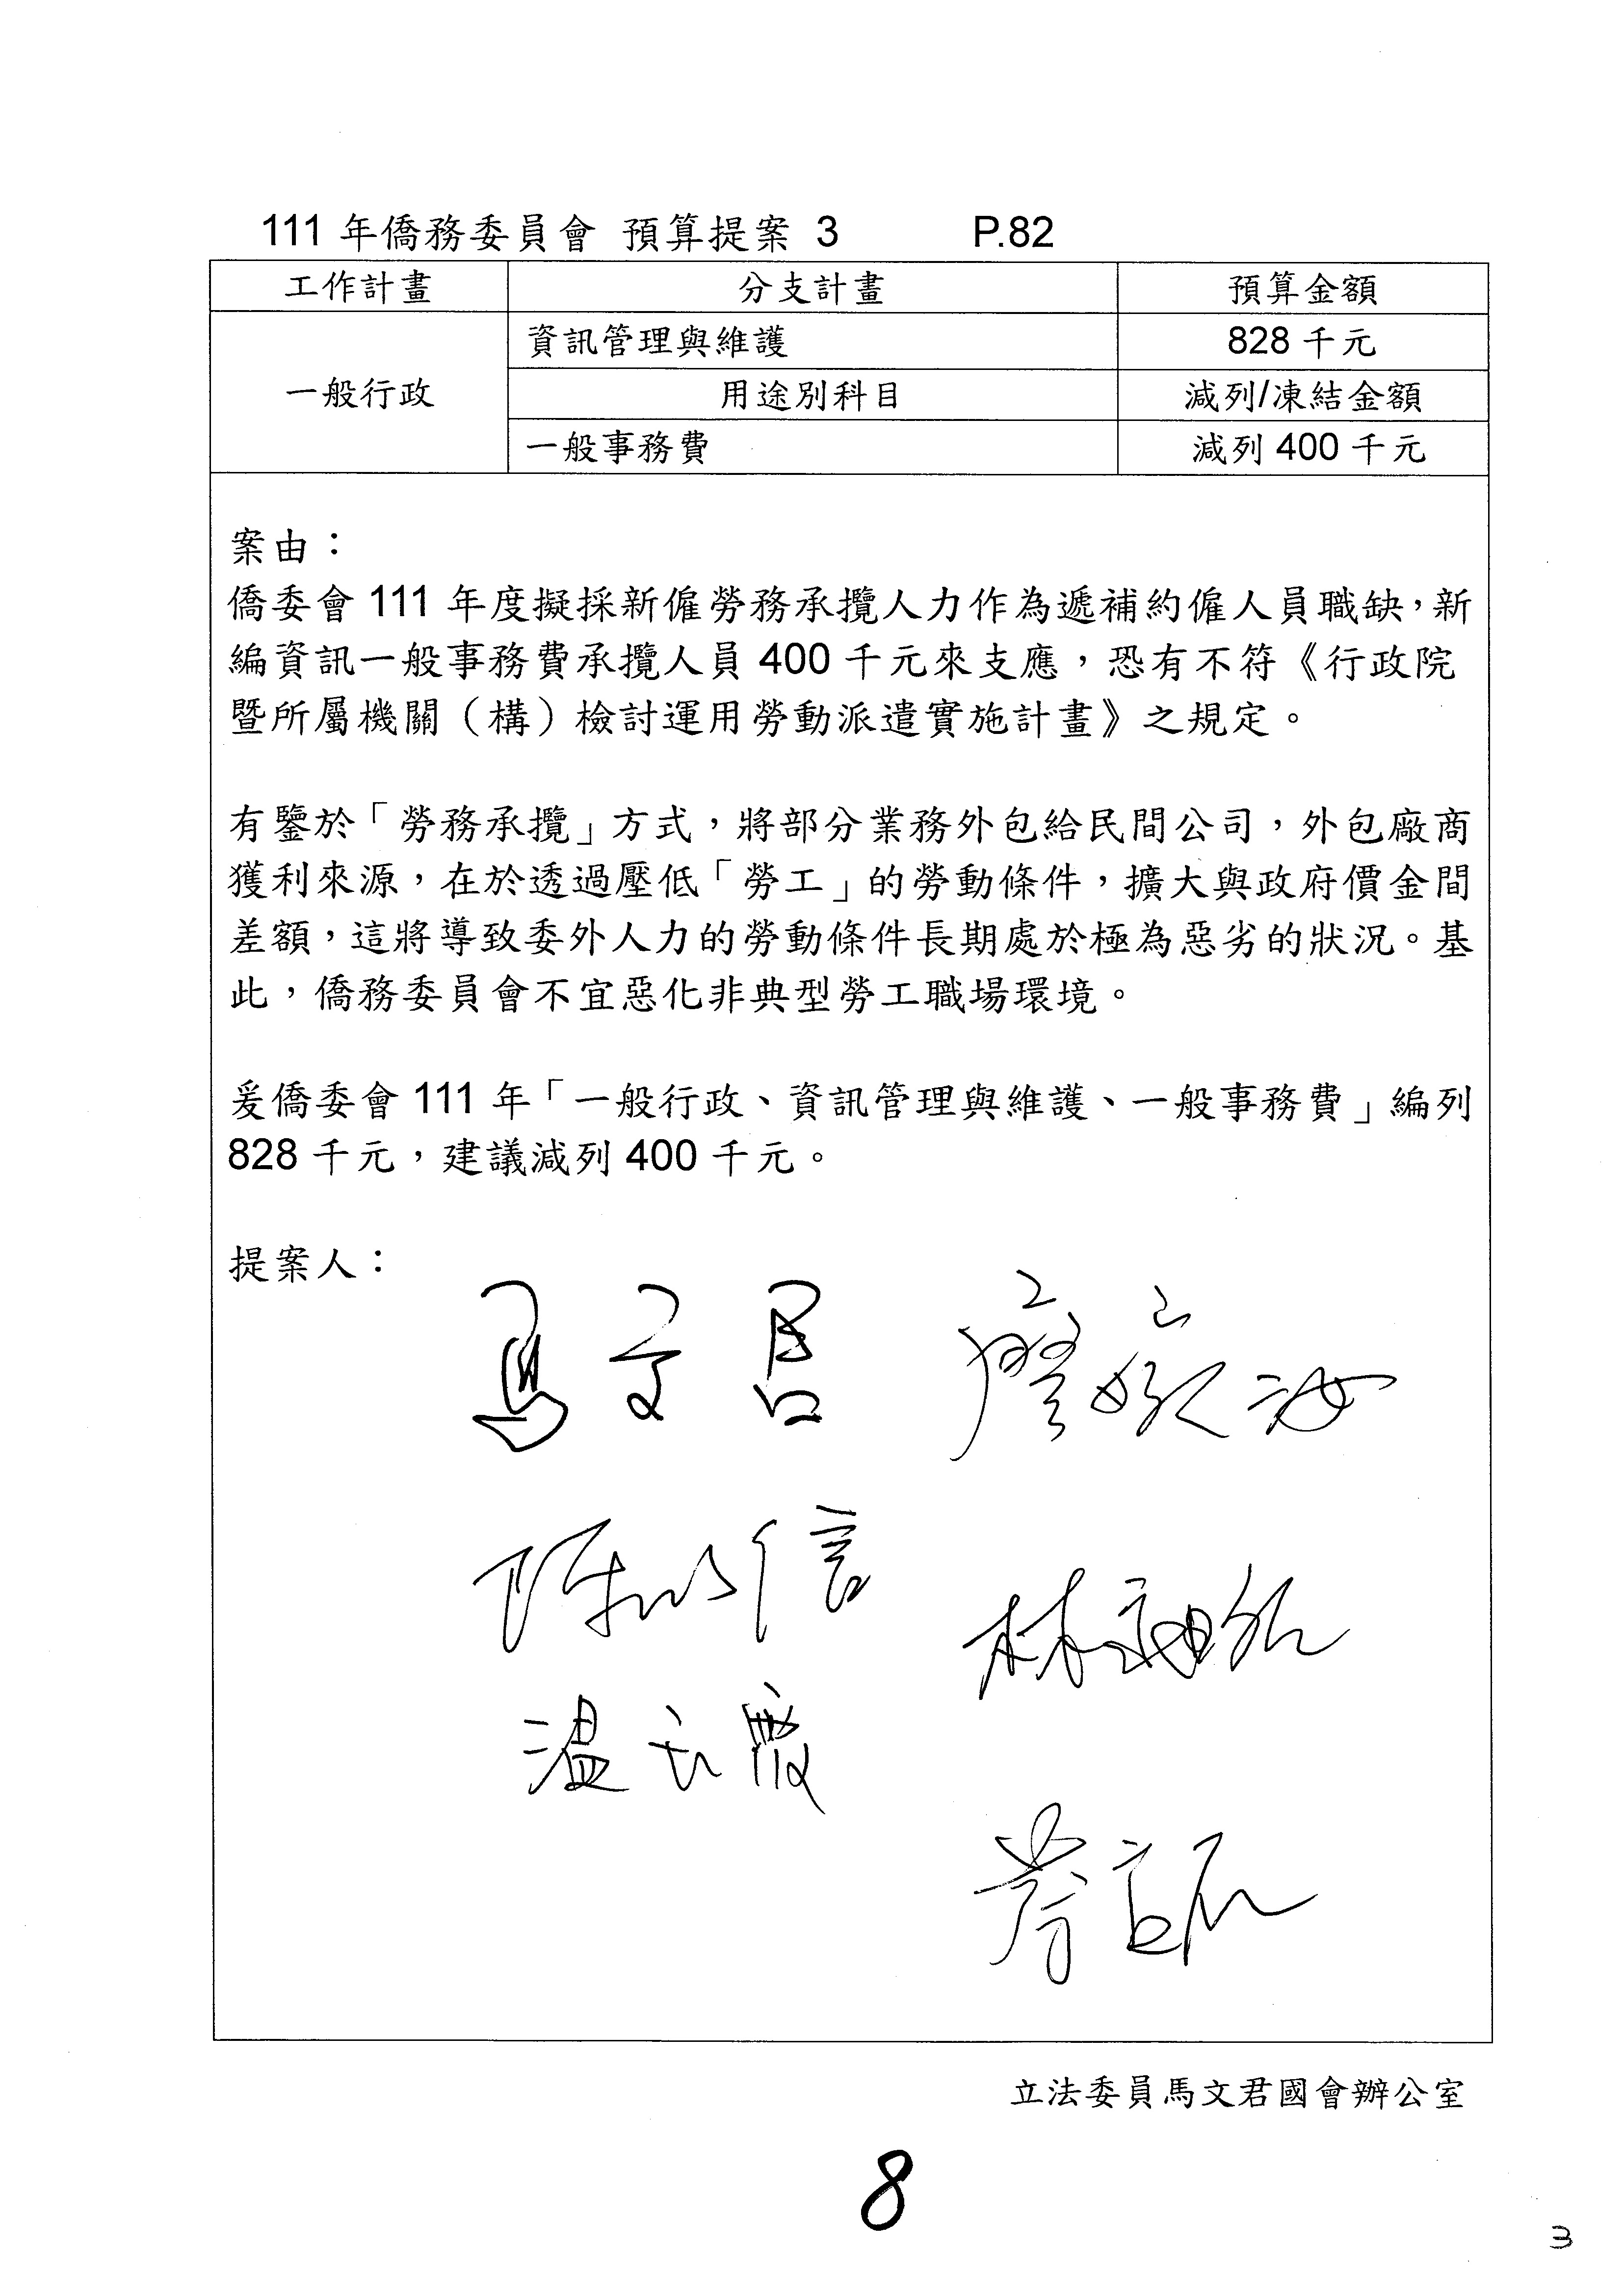 111 年僑務委員會 預算提案 3 P.82
工作計畫 分支計畫 預算金額
一般行政 資訊管理與維護 828 千元
用途別科目 減列/凍結金額
一般事務費 減列 400 千元
案由：
僑委會 111 年度擬採新僱勞務承攬人力作為遞補約僱人員職缺，新
編資訊一般事務費承攬人員 400 千元來支應，恐有不符《行政院
暨所屬機關（構）檢討運用勞動派遣實施計畫》之規定。
有鑒於「勞務承攬」方式，將部分業務外包給民間公司，外包廠商
獲利來源，在於透過壓低「勞工」的勞動條件，擴大與政府價金間
差額，這將導致委外人力的勞動條件長期處於極為惡劣的狀況。基
此，僑務委員會不宜惡化非典型勞工職場環境。
爰僑委會 111 年「一般行政、資訊管理與維護、一般事務費」編列
828 千元，建議減列 400 千元。
提案人：
馬文君 廖婉汝
陳以信
溫玉霞
立法委員馬文君國會辦公室
8
3